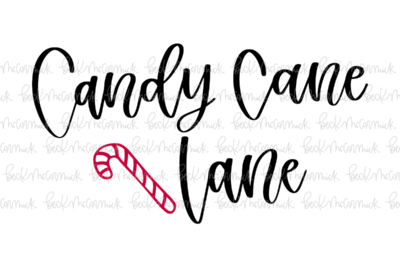 Candy Cane
Lane